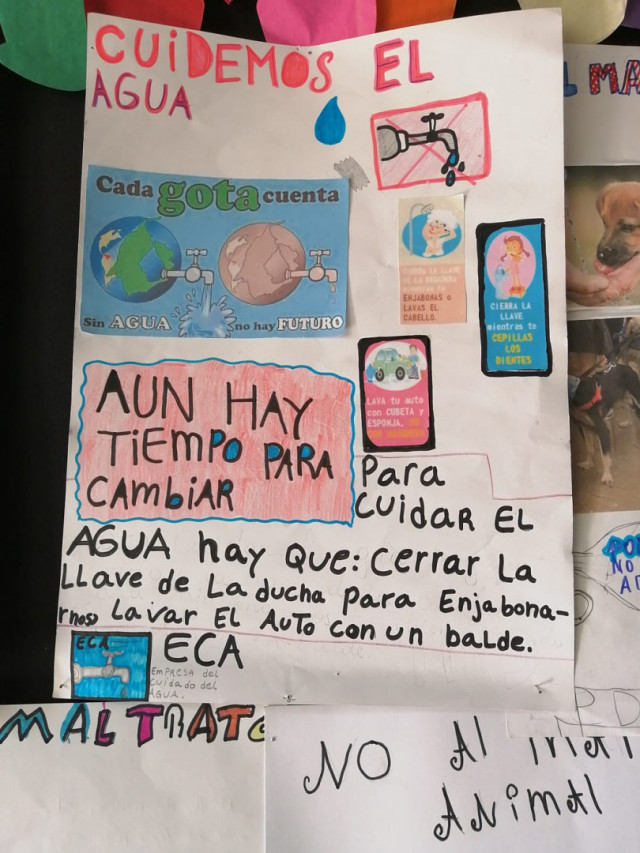 CUiDEMOS EL
AGUA
Cada gota cuenta
Sin AGUA no hay FUTURO
CIERRA LA LLAVE
ENJABONAS o
LAVAS EL
CABELLO.
CIERRA LA
LLAVE
mientras te
CEPILLAS
LOS
DIENTES
LAVA tu auto
con CUBETA y
ESPONJA.
AUN HAY
TiEMPO PARA
CAMbiAR
Para
CUidAR EL
AGUA hay QUE: CERRAR LA
LLAVE de LA ducha PARA Enjabona-
rnos, LAVAR EL AUTO CON UN bALdE.
ECA
ECA
EMPRESA del
Cuidado del
AGUA.
MALTRATO
NO Al
ANiMAl